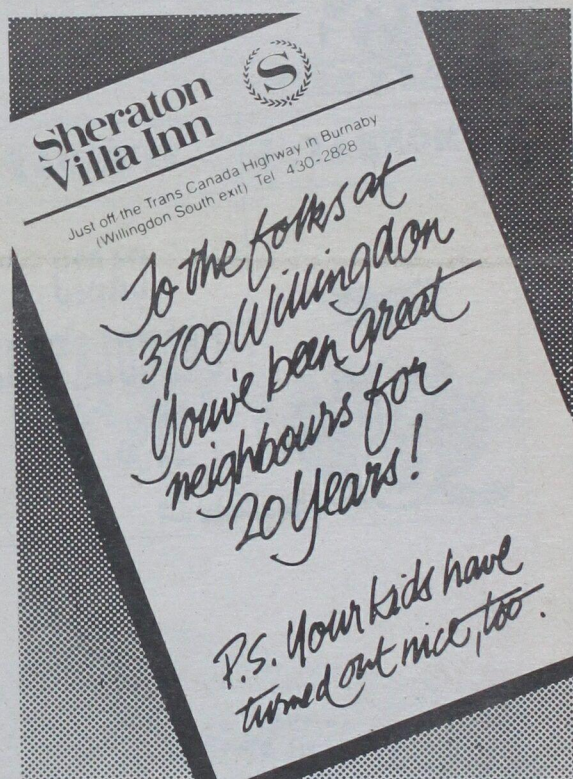 Sheraton
Villa Inn
S
Just off the Trans Canada Highway in Burnaby
(Willingdon South exit) Tel 430-2828
To the folks at
3700 Willingdon
You've been great
neighbours for
20 Years!
P.S. Your kids have
turned out nice, too.